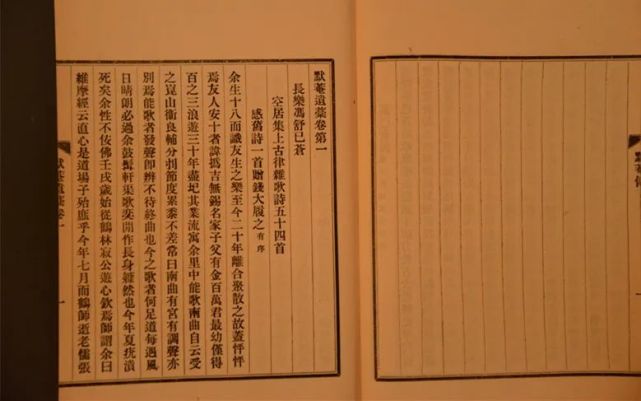 默菴遺藁卷第一
長樂馮舒已蒼
空居集上古律雜歌詩五十四首
感舊詩一首贈錢大履之有序
余生十八而識友生之樂至今二十年離合聚散之故蓋怦怦
焉友人安十者諱爲吉無錫名家子父有金百萬君最幼僅得
百之三浪遊三十年盡圮其業流寓余里中能歌南曲自云受
之崑山衞良輔分刌節度累黍不差常曰南曲有宮有調聲亦
別焉能歌者發聲卽辨不待終曲也今之歌者何足道每遇風
日晴朗必過余鼓髯軒渠歌作長身然也今年夏疣潰
死矣余性不佞壬戌歲始從鶴林寂公遊心欽焉師謂余曰
維摩經云直心是道場子殆庶乎今年七月而鶴師逝老儒張
默菴遺藁卷一
一